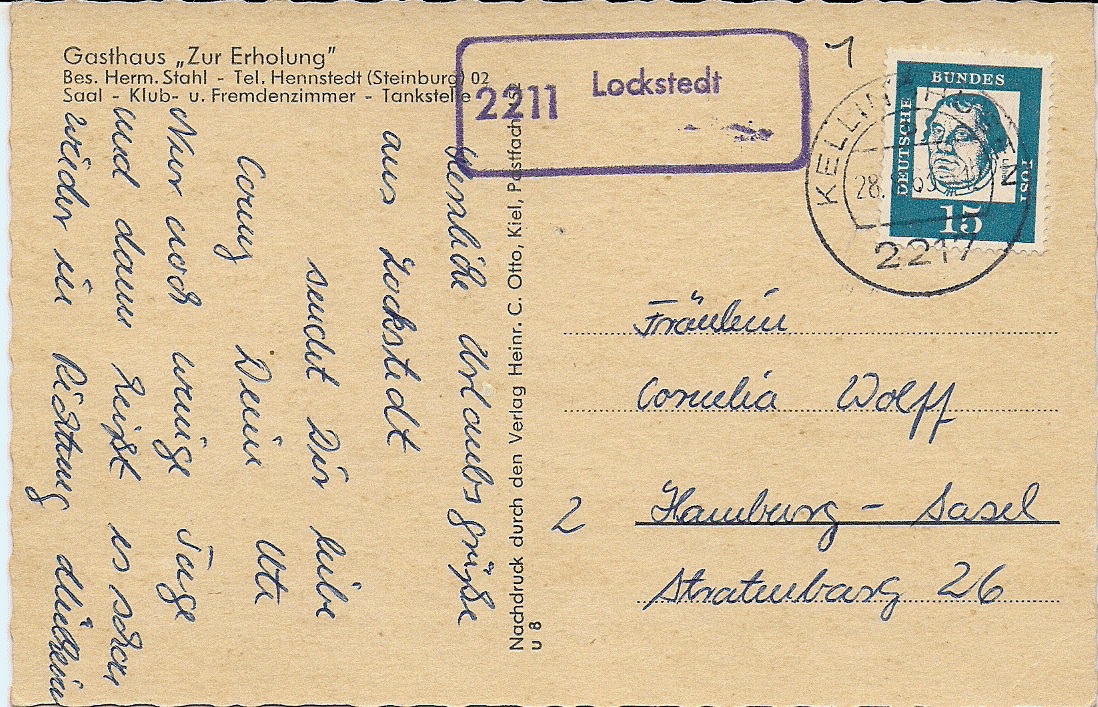 Gasthaus „Zur Erholung"
Bes. Herm. Stahl - Tel. Hennstedt (Steinburg) 02
Saal - Klub- u. Fremdenzimmer - Tankstelle
Herzliche Urlaubsgrüße
aus Lockstedt
sendet Dir liebe
Conny Deine Ute
Nur noch wenige Tage
und dann heißt es schon
wieder in Richtung
Nachdruck durch den Verlag Heinr. C. Otto, Kiel, Postfach
u 8
2211 Lockstedt
1
KELLINGHUSEN
28.
2217
DEUTSCHE BUNDES POST
15
Fräulein
Cornelia Wolff
2
Hamburg - Sasel
Stratenbarg 26